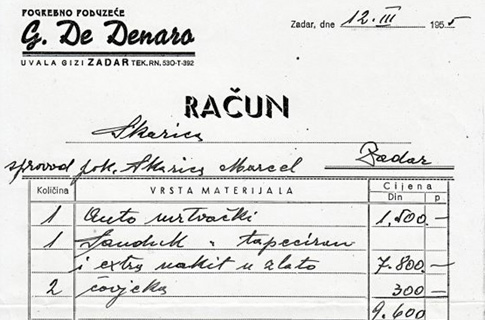 POGREBNO PODUZEĆE
G. De Denaro
UVALA GIZI ZADAR TEK. RN. 530-T-392
Zadar, dne 12. III 1955
RAČUN
Skarica
sprovod pok. Skarica Marcel Zadar
Količina VRSTA MATERIJALA Cijena
Din p
1 Auto mrtvački 1.500.—
1 Sanduk tapeciran
i extra nakit u zlato 7.800.—
2 čovjeka 300—
9.600